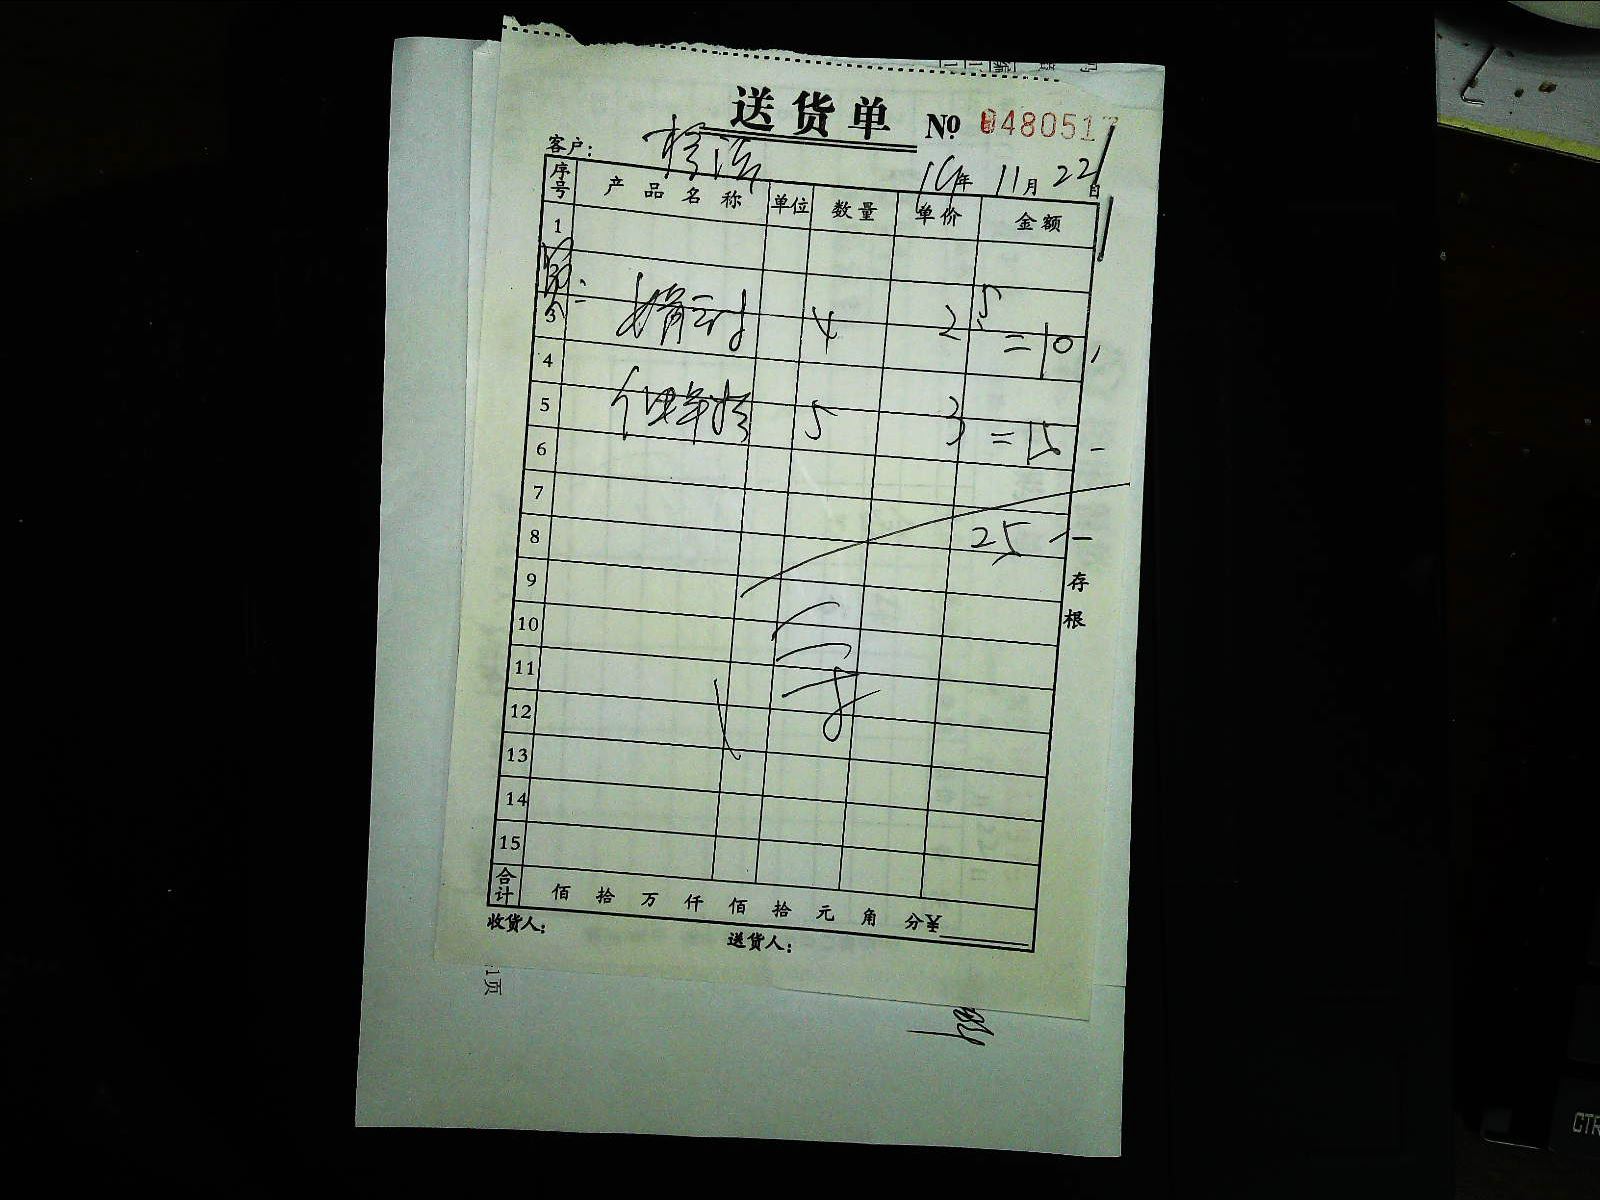 送货单 № 0480517
客户:
16年 11月 22日
序号 产品名称 单位 数量 单价 金额
1
3 4 2.5 =10,
4
5 5 3 =15-
6
7
8 25-
9
10
11
12
13
14
15
合计 佰 拾 万 仟 佰 拾 元 角 分¥
收货人: 送货人:
存根
1页
CTR